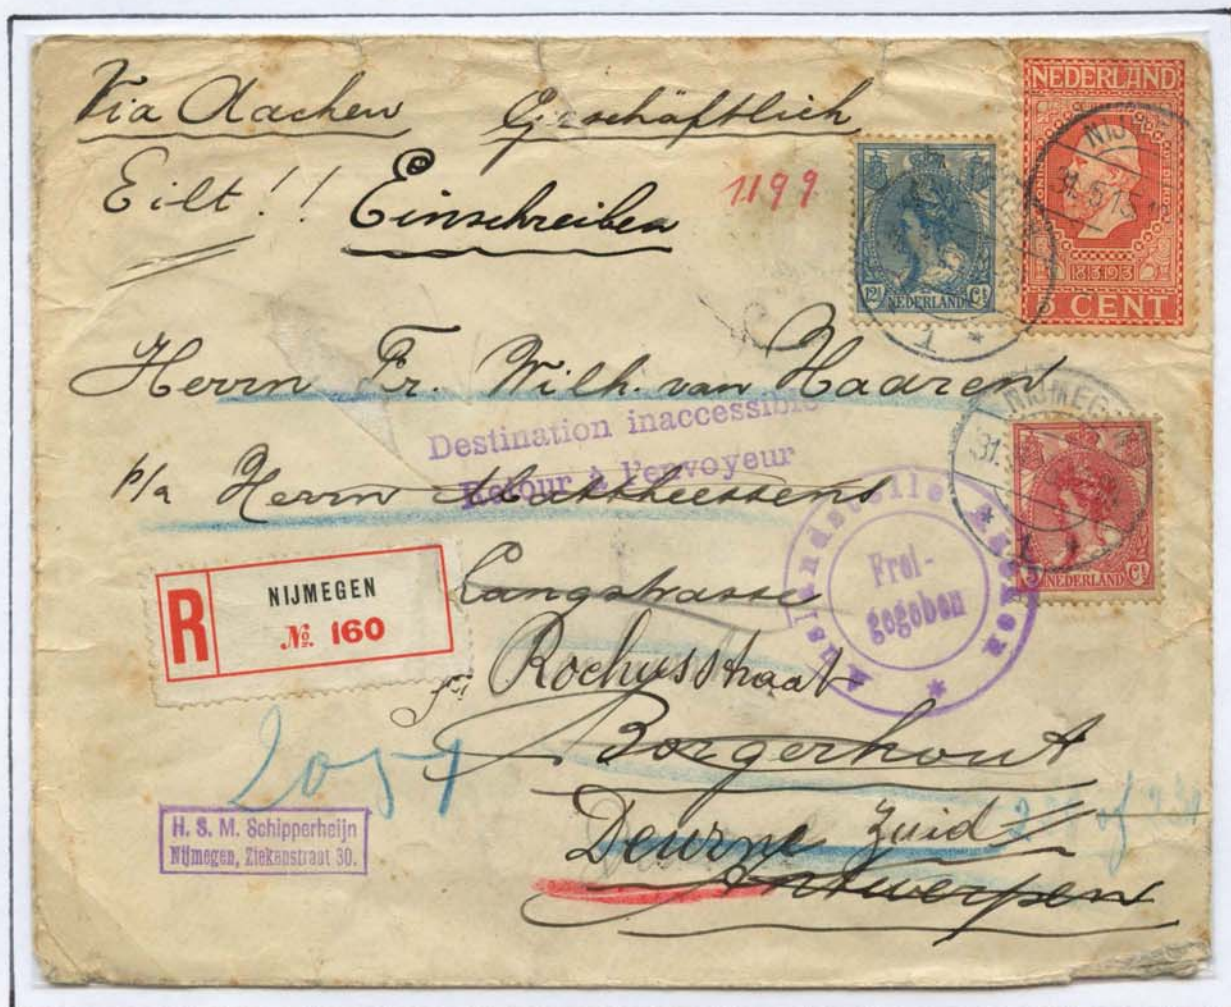 Via Aachen Geschäftlich
Eilt!! Einschreiben
1199
NEDERLAND
1813 1913
5 CENT
12½ NEDERLAND Ct
NIJ
31.5.15
1 *
Herrn Fr. Wilh. van Haaren
Destination inaccessible
Retour à l'envoyeur
p/a Herrn Mattheessens
NIJMEGEN
31.
1 *
5 NEDERLAND Ct
* Auslandstelle * Aachen *
Frei-
gegeben
R NIJMEGEN
№ 160
Langstrasse
Rochusstraat
Borgerhout
2051
Deurne Zuid
Antwerpen
H. S. M. Schipperheijn
Nijmegen, Ziekenstraat 30.